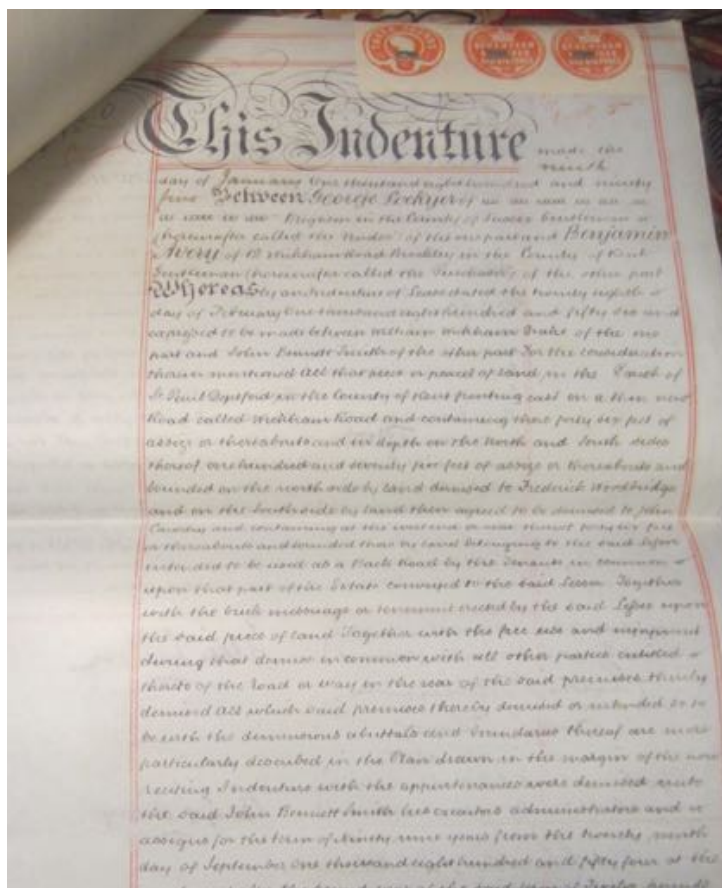 This Indenture made the
ninth
day of January One thousand eight hundred and ninety
five Between George Lockyer of
Brighton in the County of Sussex Gentleman
(hereinafter called the Vendor) of the one part and Benjamin
Avery of Wickham Road Brockley in the County of Kent
Gentleman (hereinafter called the Purchaser) of the other part
Whereas by an Indenture of Lease dated the twenty eighth
day of February One thousand eight hundred and fifty and
expressed to be made between William Wickham Drake of the one
part and John Bennett Smith of the other part For the consideration
therein mentioned All that piece or parcel of land in the Parish of
St Paul Deptford in the County of Kent fronting east on a then new
Road called Wickham Road and containing there forty six feet of
assize or thereabouts and in depth on the North and South sides
thereof one hundred and seventy feet of assize or thereabouts and
bounded on the north side by land demised to Frederick Woodbridge
and on the South side by land then agreed to be demised to John
and containing at the west end or rear thereof forty six feet
or thereabouts and bounded there by land belonging to the said Lessor
intended to be used as a Back Road by the Tenants in common
upon that part of the Estate conveyed to the said Lessor Together
with the brick messuage or tenement erected by the said Lessee upon
the said piece of land Together with the free use and enjoyment
during that demise in common with all other parties entitled
thereto of the road or way in the rear of the said premises thereby
demised All which said premises thereby demised or intended so to
be with the dimensions abuttals and boundaries thereof are more
particularly described in the Plan drawn in the margin of the now
reciting Indenture with the appurtenances were demised unto
the said John Bennett Smith his executors administrators and
assigns for the term of Ninety nine years from the twenty ninth
day of September One thousand eight hundred and fifty four at the